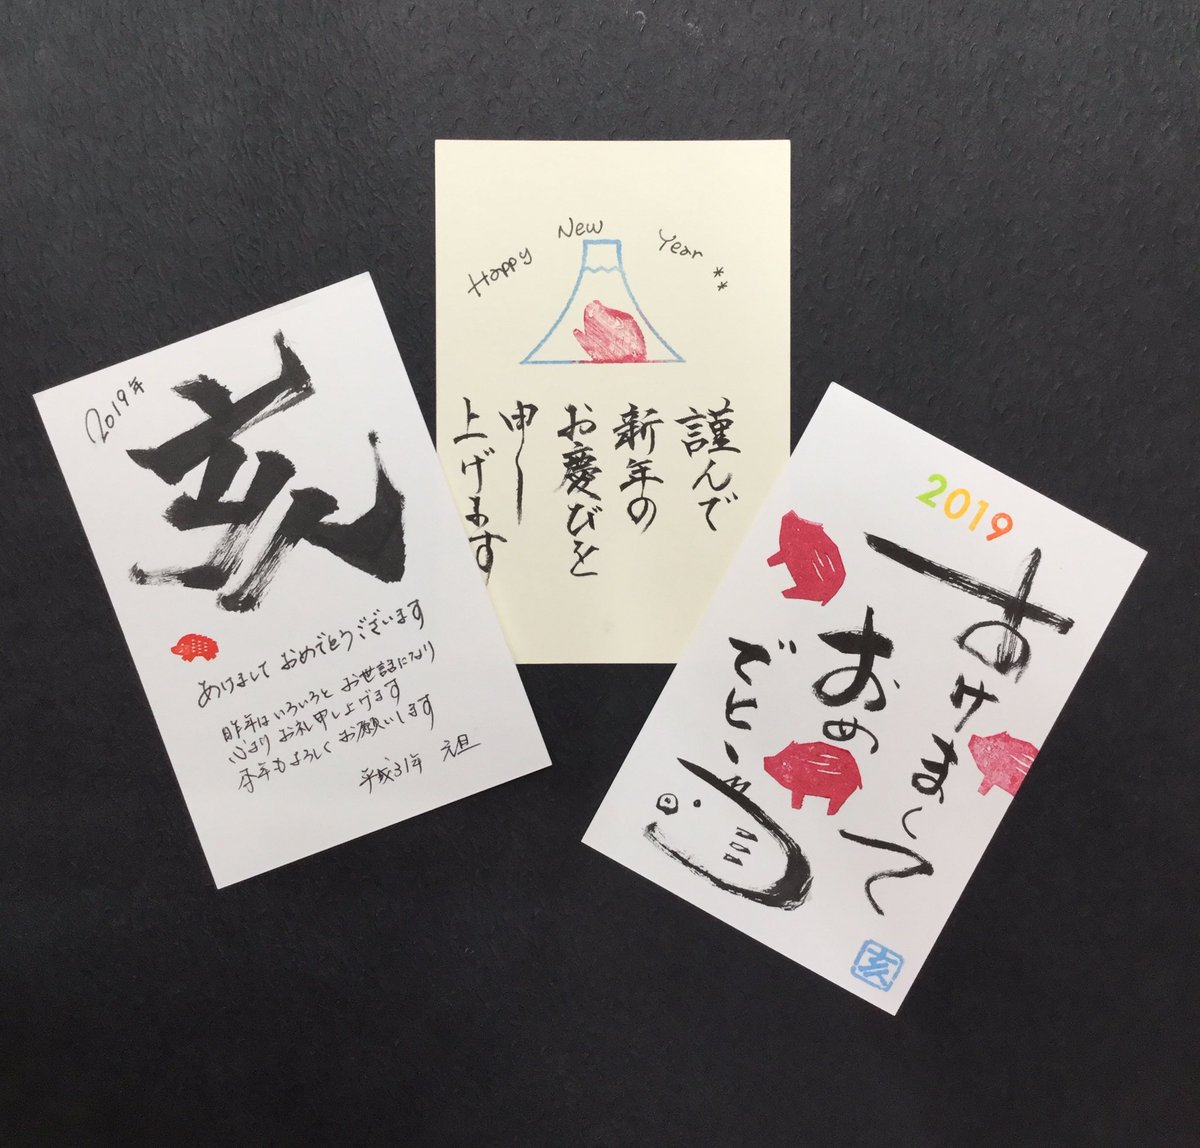 2019年
亥
あけまして おめでとうございます
昨年はいろいろと お世話になり
心より お礼申し上げます
本年もよろしく お願いします
平成31年 元旦
Happy New Year **
謹んで
新年の
お慶びを
申し
上げます
2019
あけまして
おめ
でとう
亥